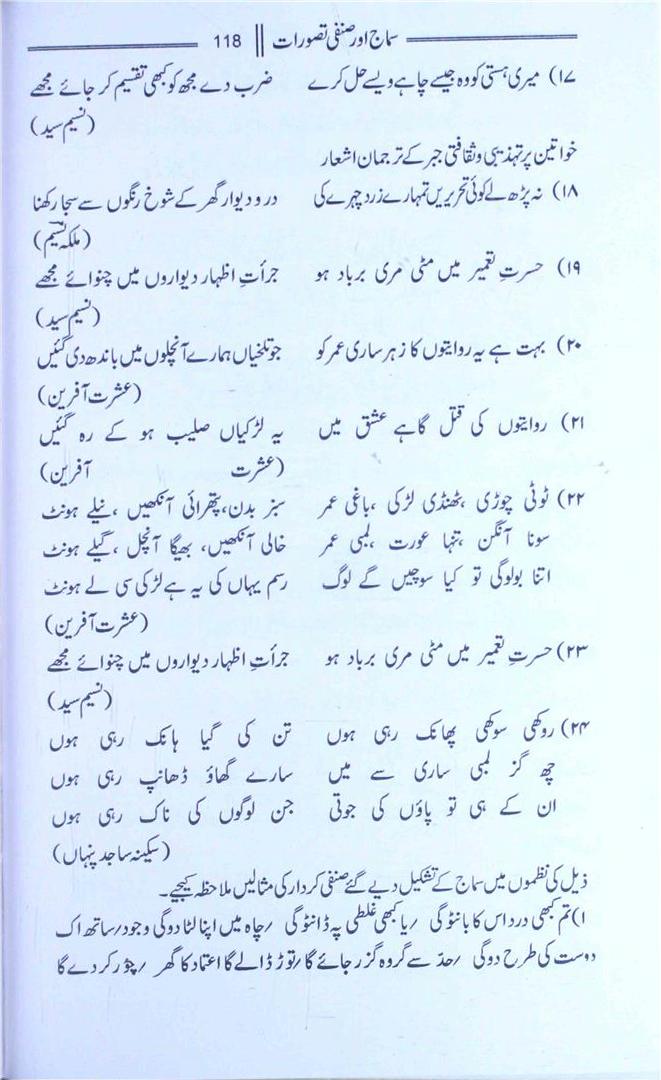 سماج اور صنفی تصورات || 118
۱۷) میری ہستی کو وہ جیسے چاہے ویسے حل کرے ضرب دے مجھ کو کبھی تقسیم کر جائے مجھے
(نسیم سید)
خواتین پر تہذیبی و ثقافتی جبر کے ترجمان اشعار
۱۸) نہ پڑھ لے کوئی تحریریں تمہارے زرد چہرے کی در و دیوار گھر کے شوخ رنگوں سے سجا رکھنا
(ملکہ نسیم)
۱۹) حسرتِ تعمیر میں مٹی مری برباد ہو جرأتِ اظہار دیواروں میں چنوائے مجھے
(نسیم سید)
۲۰) بہت ہے یہ روایتوں کا زہر ساری عمر کو جو تلخیاں ہمارے آنچلوں میں باندھ دی گئیں
(عشرت آفرین)
۲۱) روایتوں کی قتل گاہے عشق میں یہ لڑکیاں صلیب ہو کے رہ گئیں
(عشرت آفرین)
۲۲) ٹوٹی چوڑی، ٹھنڈی لڑکی، باغی عمر سبز بدن، پتھرائی آنکھیں، نیلے ہونٹ
سونا آنگن، تنہا عورت، لمبی عمر خالی آنکھیں، بھیگا آنچل، گیلے ہونٹ
اتنا بولوگی تو کیا سوچیں گے لوگ رسم یہاں کی یہ ہے لڑکی سی لے ہونٹ
(عشرت آفرین)
۲۳) حسرتِ تعمیر میں مٹی مری برباد ہو جرأتِ اظہار دیواروں میں چنوائے مجھے
(نسیم سید)
۲۴) روکھی سوکھی پھانک رہی ہوں تن کی گیا ہانک رہی ہوں
چھ گز لمبی ساری سے میں سارے گھاؤ ڈھانپ رہی ہوں
ان کے ہی تو پاؤں کی جوتی جن لوگوں کی ناک رہی ہوں
(سکینہ ساجد پنہاں)
ذیل کی نظموں میں سماج کے تشکیل دیے گئے صنفی کردار کی مثالیں ملاحظہ کیجیے۔
۱) تم کبھی درد اس کا بانٹوگی / یا کبھی غلطی پہ ڈانٹوگی / چاہ میں اپنا لٹا دوگی وجود / ساتھ اک
دوست کی طرح دوگی / حدّ سے گروہ گزر جائے گا / توڑ ڈالے گا اعتماد کا گھر / چُور کر دے گا